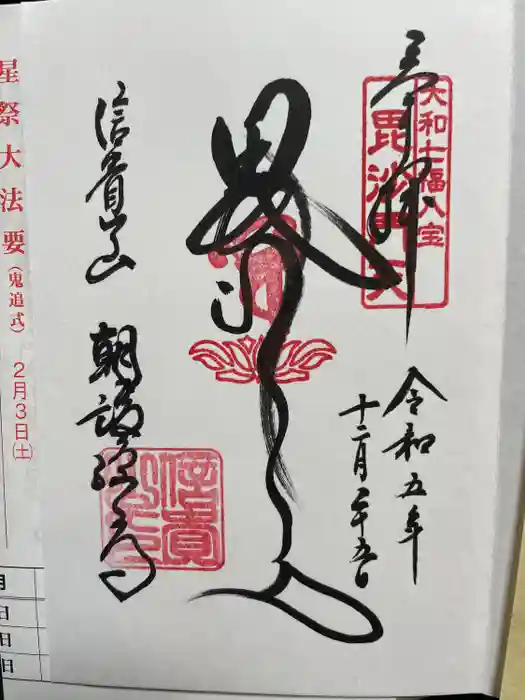 奉拝
大和七福八宝
毘沙門天
令和五年
十二月二十五日
信貴山
朝護孫子寺
信貴
星祭大法要(鬼追式) 2月3日(土)
月
日
日
日